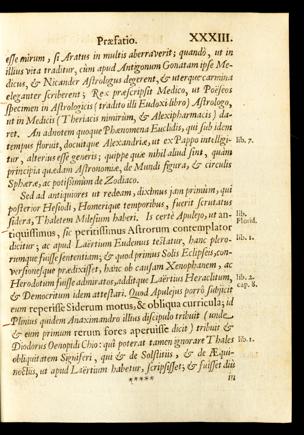 Præfatio. XXXIII.
esse mirum, si Aratus in multis aberraverit; quandò, ut in
illius vita traditur, cùm apud Antigonum Gonatam ipse Me-
dicus, & Nicander Astrologus degerent, & uterque carmina
eleganter scriberent; Rex præscripsit Medico, ut Poëseos
specimen in Astrologicis (tradito illi Eudoxi libro) Astrologo,
ut in Medicis (Theriacis nimirùm, & Alexipharmacis) da-
ret. An adnotem quoque Phænomena Euclidis, qui sub idem
tempus floruit, docuitque Alexandriæ, ut ex Pappo intelligi- lib. 7.
tur, alterius esse generis; quippe quæ nihil aliud sint, quàm
principia quædam Astronomiæ, de Mundi figura, & circulis
Sphæræ, ac potissimùm de Zodiaco.
Sed ad antiquiores ut redeam, diximus jam primùm, qui
posterior Hesiodi, Homerique temporibus, fuerit scrutatus
sidera, Thaletem Milesium haberi. Is certè Apulejo, ut an- lib. Florid.
tiquissimus, sic peritissimus Astrorum contemplator
dicitur; ac apud Laërtium Eudemus testatur, hanc plero- lib. 1.
rúmque fuisse sententiam; & quod primus Solis Eclipseis, con-
versionesque prædixisset, hanc ob causam Xenophanem, ac
Herodotum fuisse admirator, additque Laërtius Heraclitum, lib. 2. cap. 8.
& Democritum idem attestari. Quod Apulejus porrò subjicit
eum reperisse Siderum motus, & obliqua curricula; id
Plinius quidem Anaximandro illius discipulo tribuit (unde
& eum primum rerum fores aperuisse dicit) tribuit &
Diodorus Oenopidi Chio: quî poterat tamen ignorare Thales lib. 1.
obliquitatem Signiferi, qui & de Solstitiis, & de Æqui-
noctiis, ut apud Laërtium habetur, scripsisset; & fuisset diù
***** in